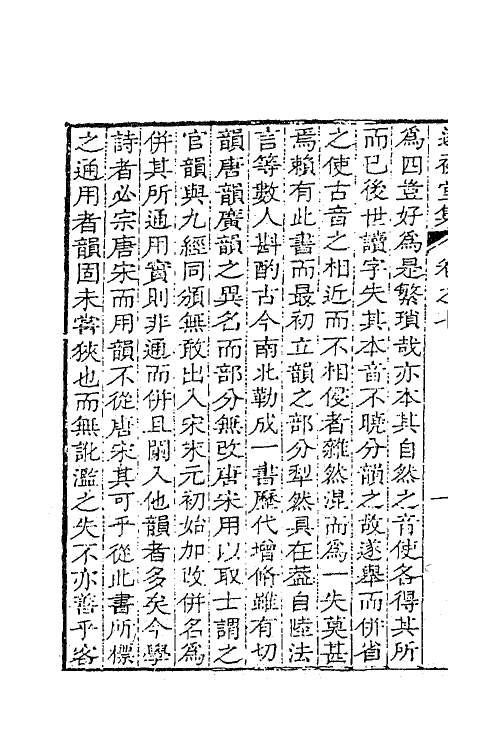 為四豈好為是繁瑣哉亦本其自然之音使各得其所
而已後世讀字失其本音不曉分韻之故遂舉而併省
之使古音之相近而不相侵者雜然混而為一失莫甚
焉賴有此書而最初立韻之部分犁然具在葢自陸法
言等數人斟酌古今南北勒成一書歷代增脩雖有切
韻唐韻廣韻之異名而部分無改唐宋用以取士謂之
官韻與九經同頒無敢出入宋末元初始加改併名為
併其所通用實則非通而併且闌入他韻者多矣今學
詩者必宗唐宋而用韻不從唐宋其可乎從此書所標
之通用者韻固未嘗狹也而無訛濫之失不亦善乎客